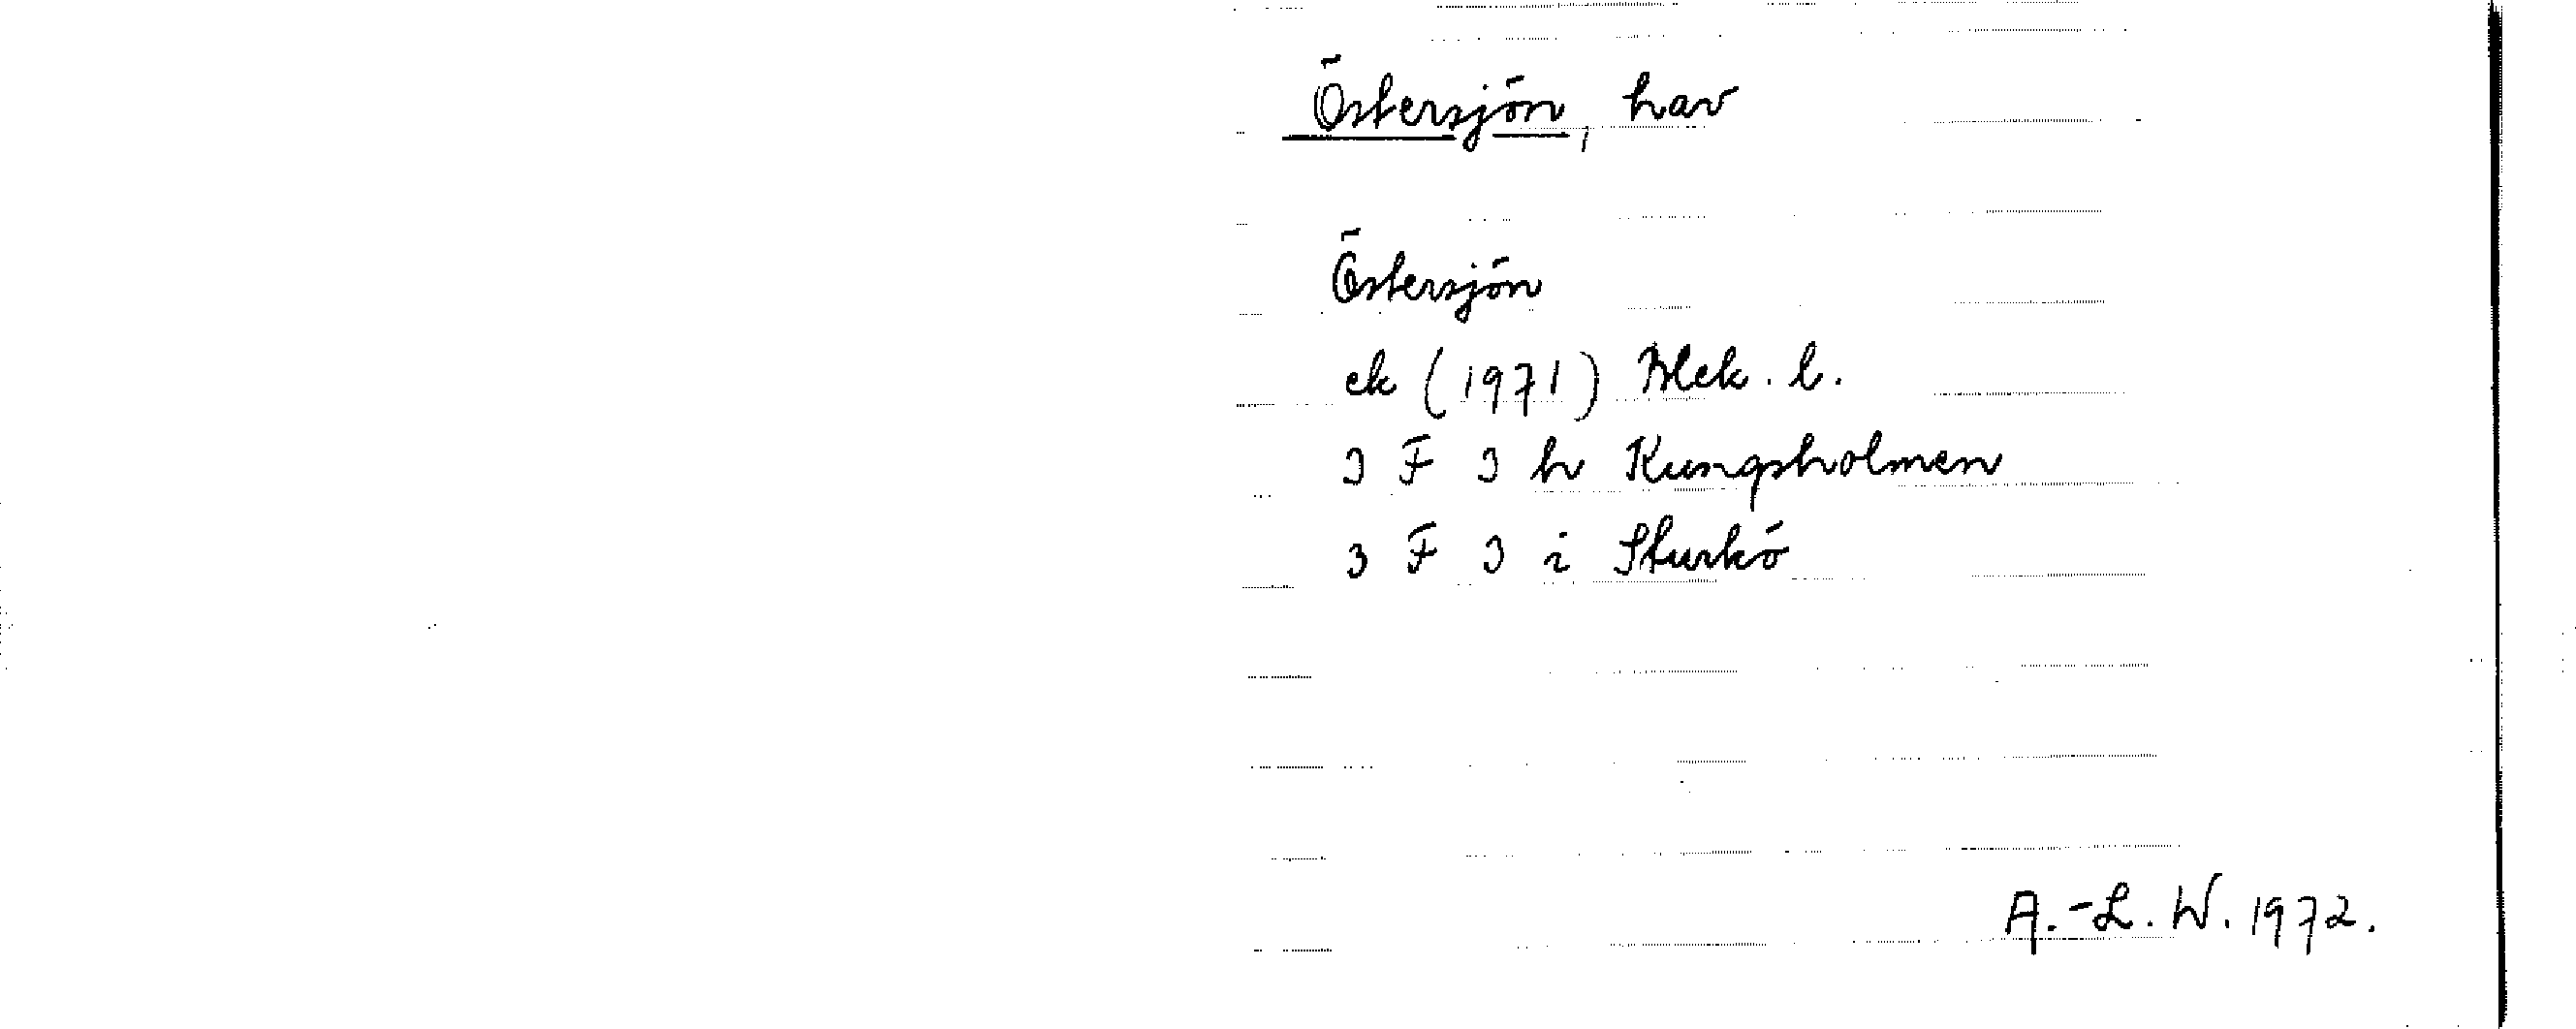 Östersjön, hav
Östersjön
ek (1971) Blek. l.
3 F 3 h Kungsholmen
3 F 3 i Sturkö
A.-L. W. 1972.